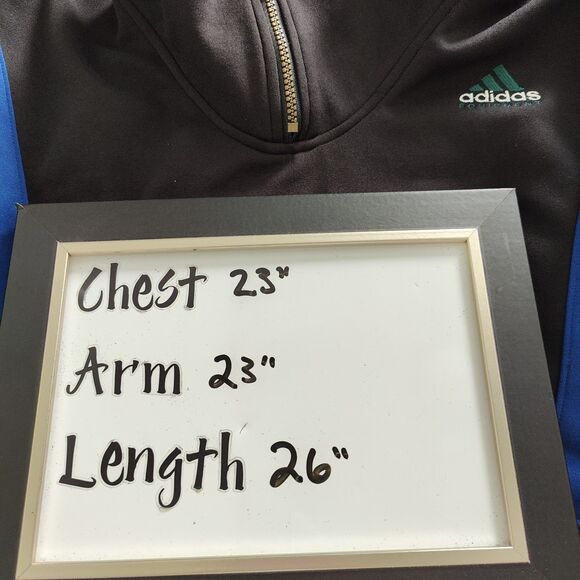 adidas
EQUIPMENT
Chest 23"
Arm 23"
Length 26"